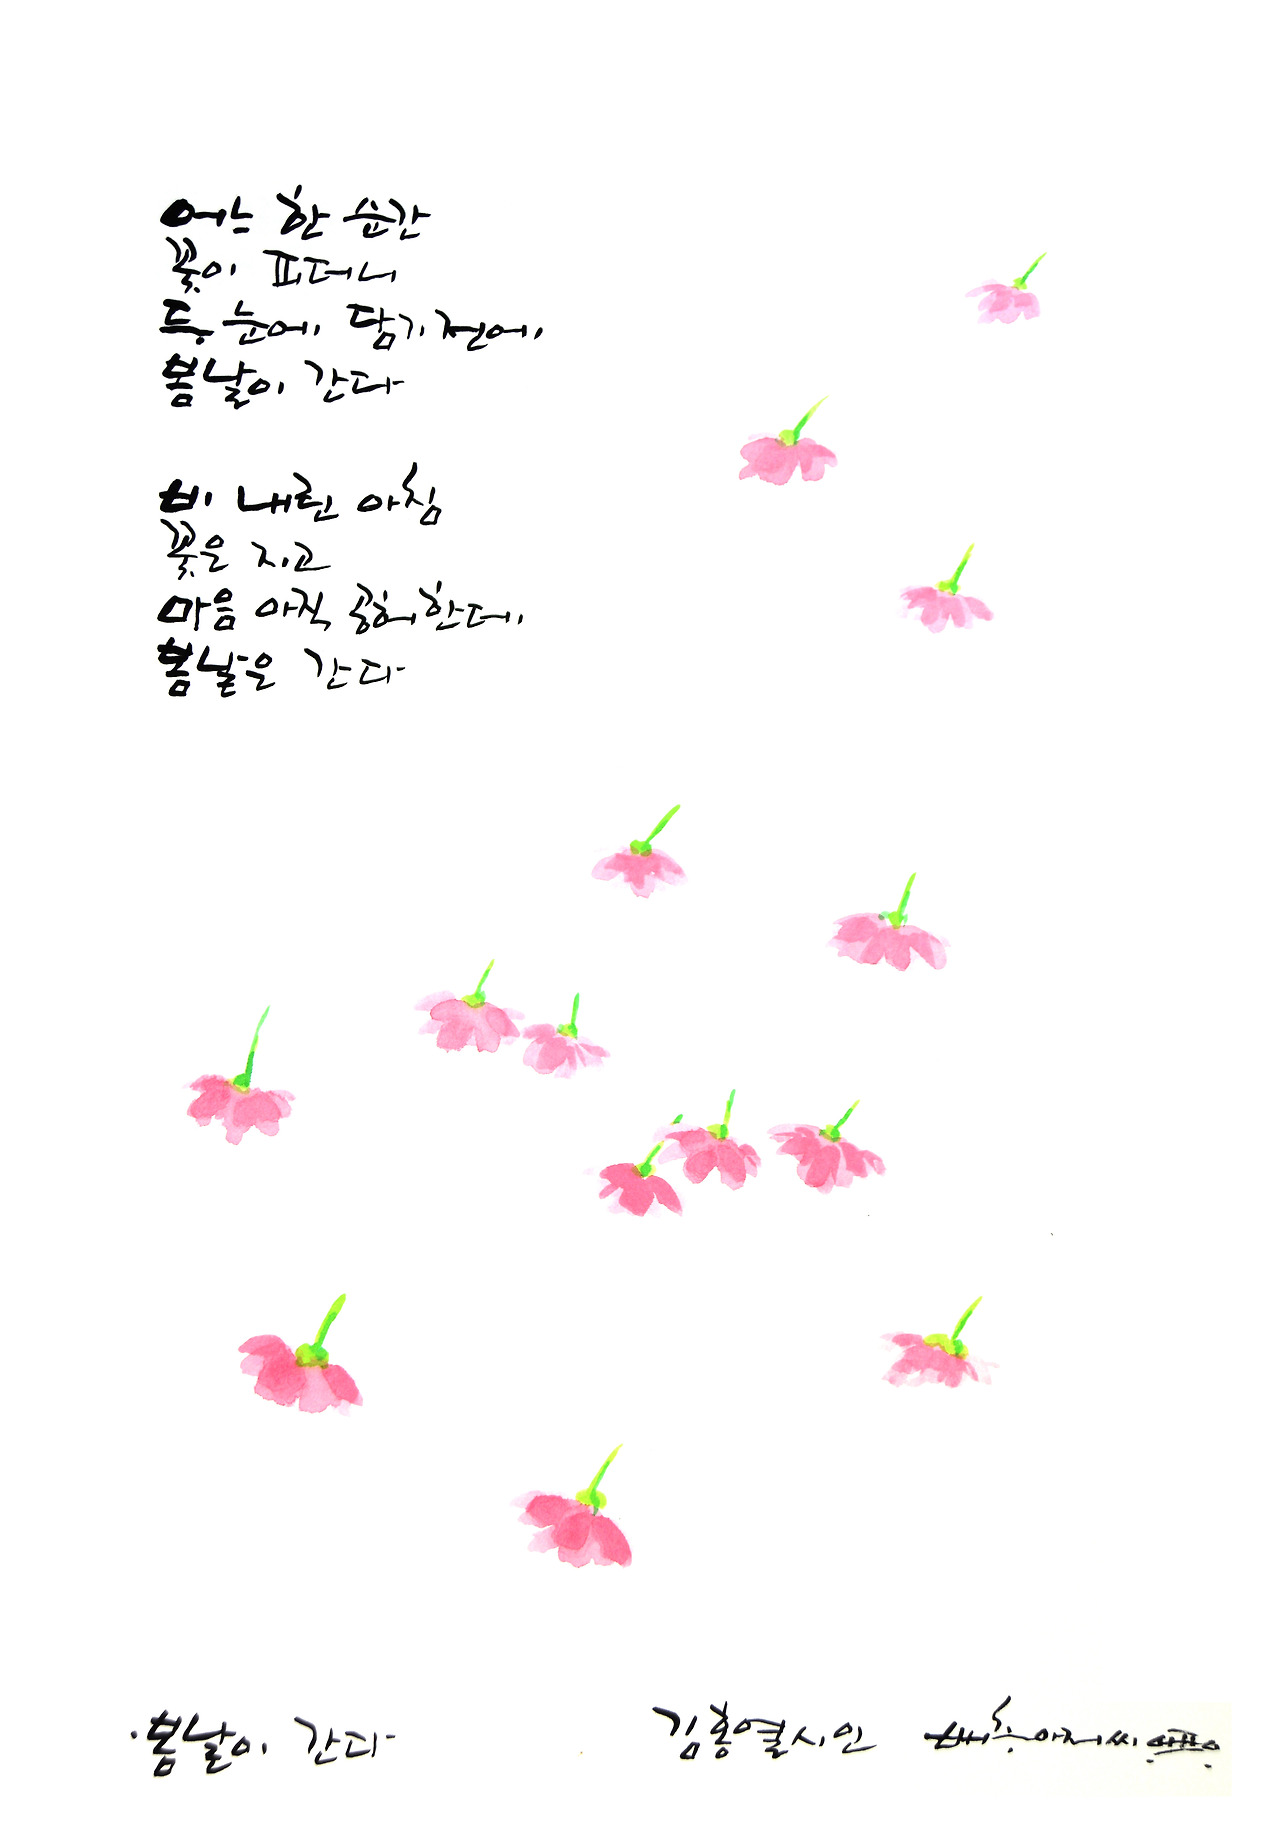 어느 한 순간
꽃이 피더니
두 눈에 담기 전에
봄날이 간다
비 내린 아침
꽃은 지고
마음 아직 공허한데
봄날은 간다
봄날이 간다 김홍열시인 배추아저씨